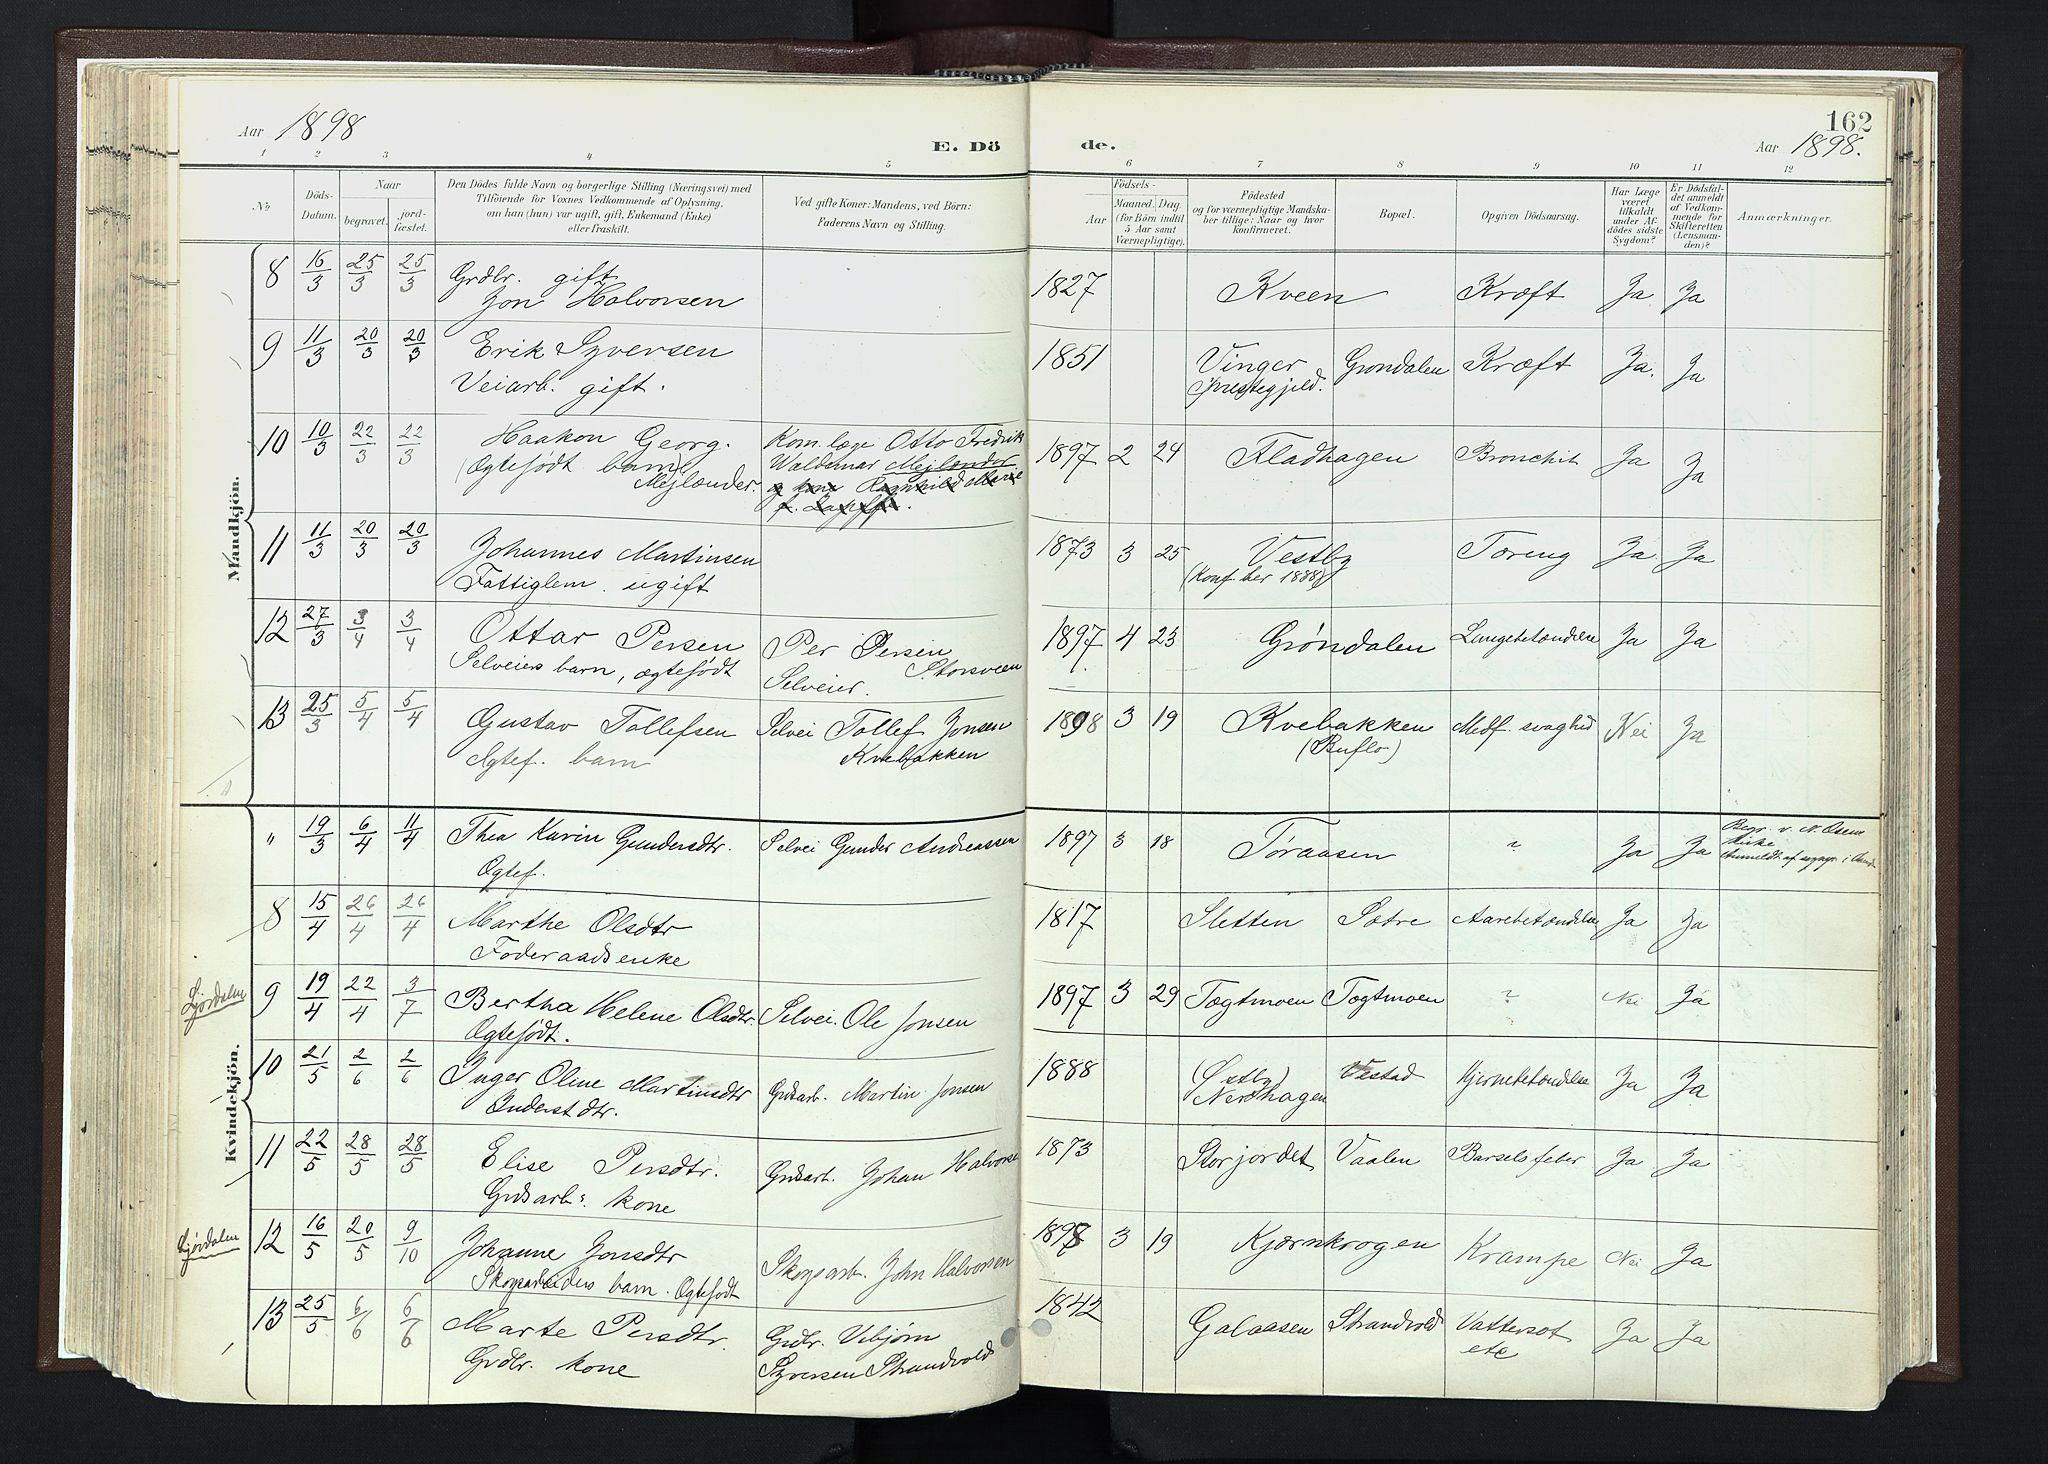 Aar 1898
E. Dö
1 2 3 4 5
№
Döds-
Datum.
Naar
begravet.
jord-
fæstet.
Den Dödes fulde Navn og borgerlige Stilling (Næringsvei) med
Tilföiende for Voxnes Vedkommende af Oplysning,
om han (hun) var ugift, gift, Enkemand (Enke)
eller fraskilt.
Ved gifte Koner: Mandens, ved Börn:
Faderens Navn og Stilling.
Mandkjön.
8 16/3 25/3 25/3 Grdbr. gift
Jon Halvorsen
9 11/3 20/3 20/3 Erik Syversen
Veiarb. gift.
10 10/3 22/3 22/3 Haakon Georg. Kom. læge Otto Fredrik
(Ægtefødt barn) Waldemar Mejlænder
Mejlænder. og kone Ragnhild Marie
11 11/3 20/3 20/3 Johannes Martinsen
Fattiglem. ugift
12 27/3 3/4 3/4 Ottar Persen Per Persen
Selveiers barn, ægtefødt Storsveen
Selveier.
13 25/3 5/4 5/4 Gustav Tollefsen Selvei Tollef Jonsen
Ægtef. barn Kvebakken
Kvindekjön.
" 19/3 6/4 11/4 Thea Karin Gundersdtr. Selvei Gunder Andreassen
Ægtef.
8 15/4 26/4 26/4 Marthe Olsdtr
Føderaadsenke
Ljørdalen 9 19/4 22/4 3/7 Bertha Helene Olsdtr. Selvei. Ole Jonsen
Ægtefødt.
10 21/5 2/6 2/6 Inger Oline Martinsdtr Grdsarb. Martin Jonsen
Inderst dtr.
11 22/5 28/5 28/5 Elise Persdtr. Grdsarb. Johan Halvorse
Grdsarb: kone
Ljørdalen 12 16/5 20/5 9/10 Johanne Jonsdtr Skogsarb. John Halvorsen
Skogsarbeiders barn. Ægtefødt
13 25/5 6/6 6/6 Marte Persdtr. Grdbr. Vebjørn
Grdbr. kone Syversen Strandvold
162
de. Aar 1898.
6 7 8 9 10 11 12
Aar
Födsels-
Maaned. Dag.
(for Börn indtil
5 Aar samt
Værnepligtige).
Födested
og for værnepligtige Mandska-
ber tillige: Naar og hvor
konfirmeret.
Bopæl.
Opgiven Dödsaarsag.
Har Læge
været
tilkaldt
under Af-
dödes sidste
Sygdom?
Er Dödsfal-
det anmeldt
af Vedkom-
mende for
Skifteretten
(Lensman-
den)?
Anmærkninger.
1827 Kveen Kræft Ja Ja
1851 Vinger Grøndalen Kræft Ja. Ja
Præstegjeld.
1897 2 24 Fladhagen Bronchit Ja Ja
1873 3 25 Vestby Tæring Ja Ja
(Konf her 1888)
1897 4 23 Grøndalen Lungebetændelse Ja Ja
1898 3 19 Kvebakken Medf. svaghed Nei Ja
(Buflo)
1897 3 18 Tøraasen ? Ja Ja Begr. v. N. Osens
Kirke
1817 Sletten Sætre Aarebetændelse Ja Ja
1897 3 29 Tægtmoen Tægtmoen ? Nei Ja
1888 (Østby) Vestad Hjernebetændelse Ja Ja
Nordhagen
1873 Storjordet Vaalen Barselsfeber Ja Ja
1898 3 19 Kjærnkrogen Krampe Nei Ja
1842 Galaasen Strandvold Vattersot Ja Ja
etc